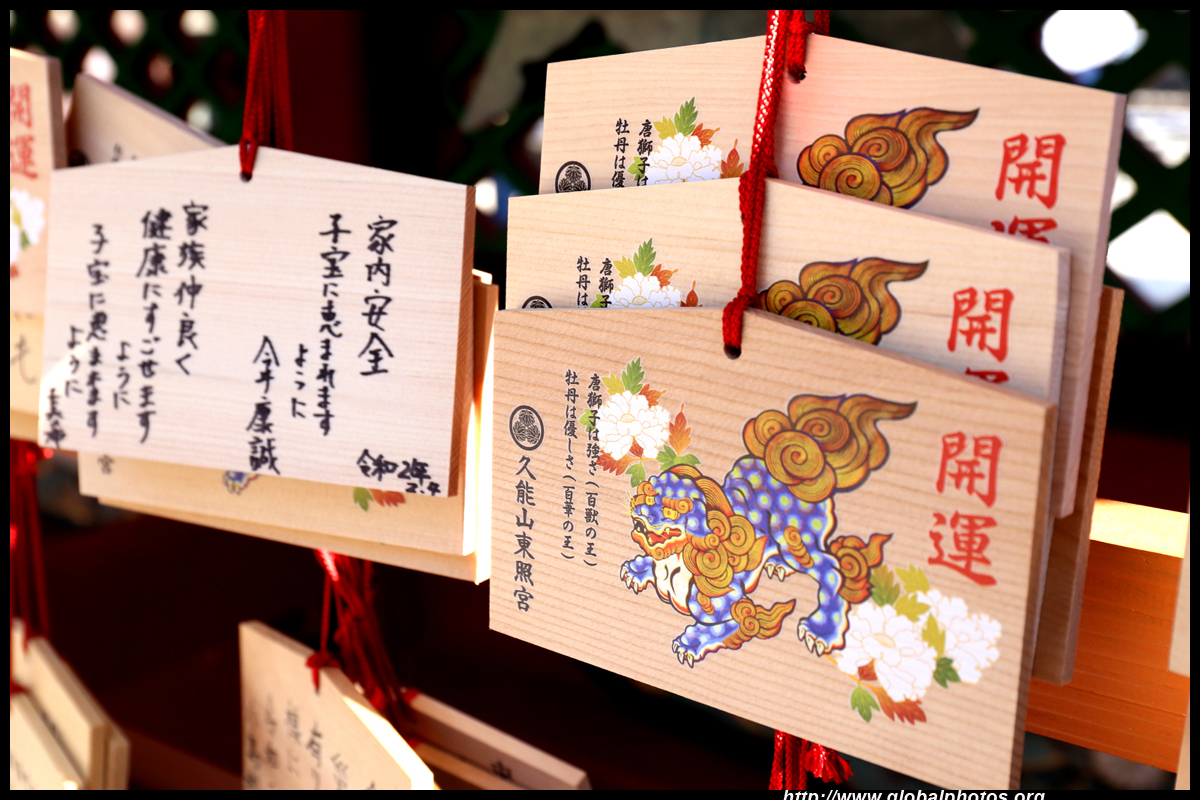 開運
唐獅子は強さ(百獣の王)
牡丹は優しさ(百華の王)
久能山東照宮
開
唐獅子
牡丹は
開運
唐獅子は
牡丹は優
家内安全
子宝に恵まれます
ように
今井康誠
令和2年
家族仲良く
健康にすごせます
ように
子宝に恵まれます
ように
開運
宮
http://www.globalphotos.org